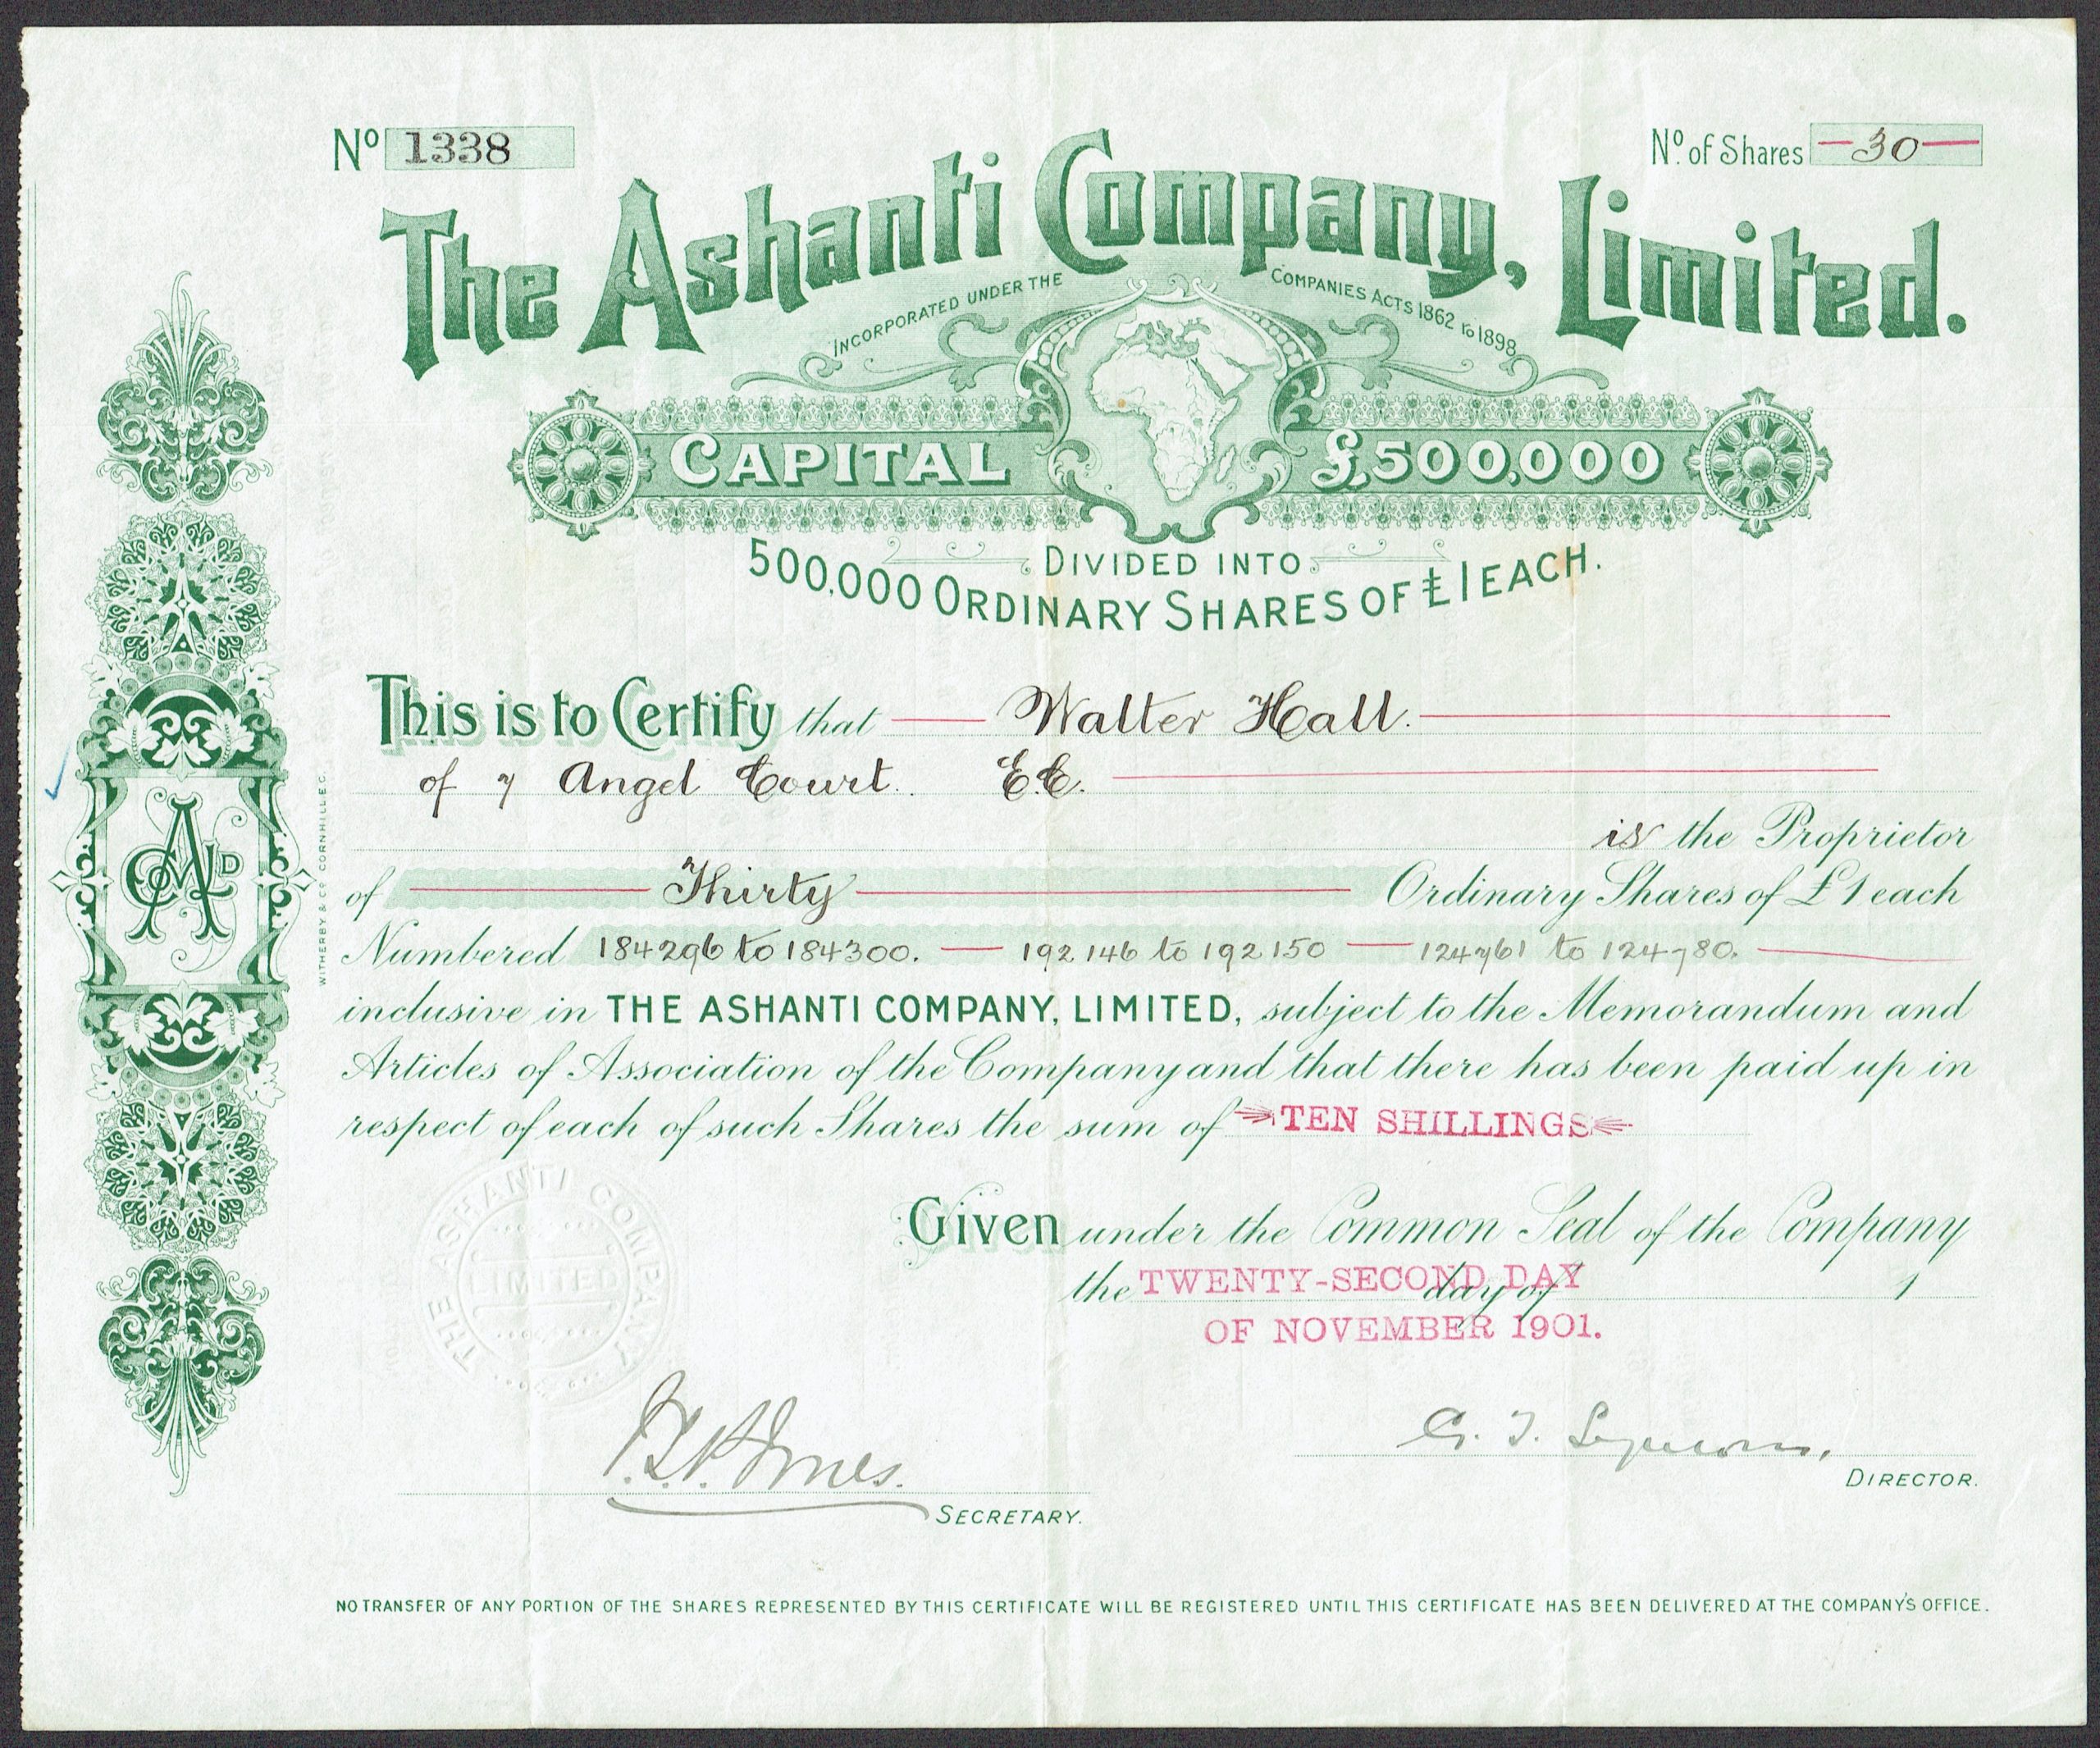 No 1338
No. of Shares — 30 —
The Ashanti Company, Limited.
INCORPORATED UNDER THE COMPANIES ACTS 1862 to 1898
CAPITAL £500,000
DIVIDED INTO
500,000 ORDINARY SHARES OF £1 EACH.
This is to Certify that — Walter Hall. —
of 7 Angel Court. E.C.
is the Proprietor
of — Thirty — Ordinary Shares of £1 each
Numbered 184296 to 184300. — 192146 to 192150 — 124761 to 124780. —
inclusive in THE ASHANTI COMPANY, LIMITED, subject to the Memorandum and
Articles of Association of the Company and that there has been paid up in
respect of each of such Shares the sum of TEN SHILLINGS
Given under the Common Seal of the Company
the TWENTY-SECOND DAY day of 1
OF NOVEMBER 1901.
THE ASHANTI COMPANY
LIMITED
SECRETARY.
DIRECTOR.
NO TRANSFER OF ANY PORTION OF THE SHARES REPRESENTED BY THIS CERTIFICATE WILL BE REGISTERED UNTIL THIS CERTIFICATE HAS BEEN DELIVERED AT THE COMPANY'S OFFICE.
WITHERBY & CO. CORNHILL E.C.